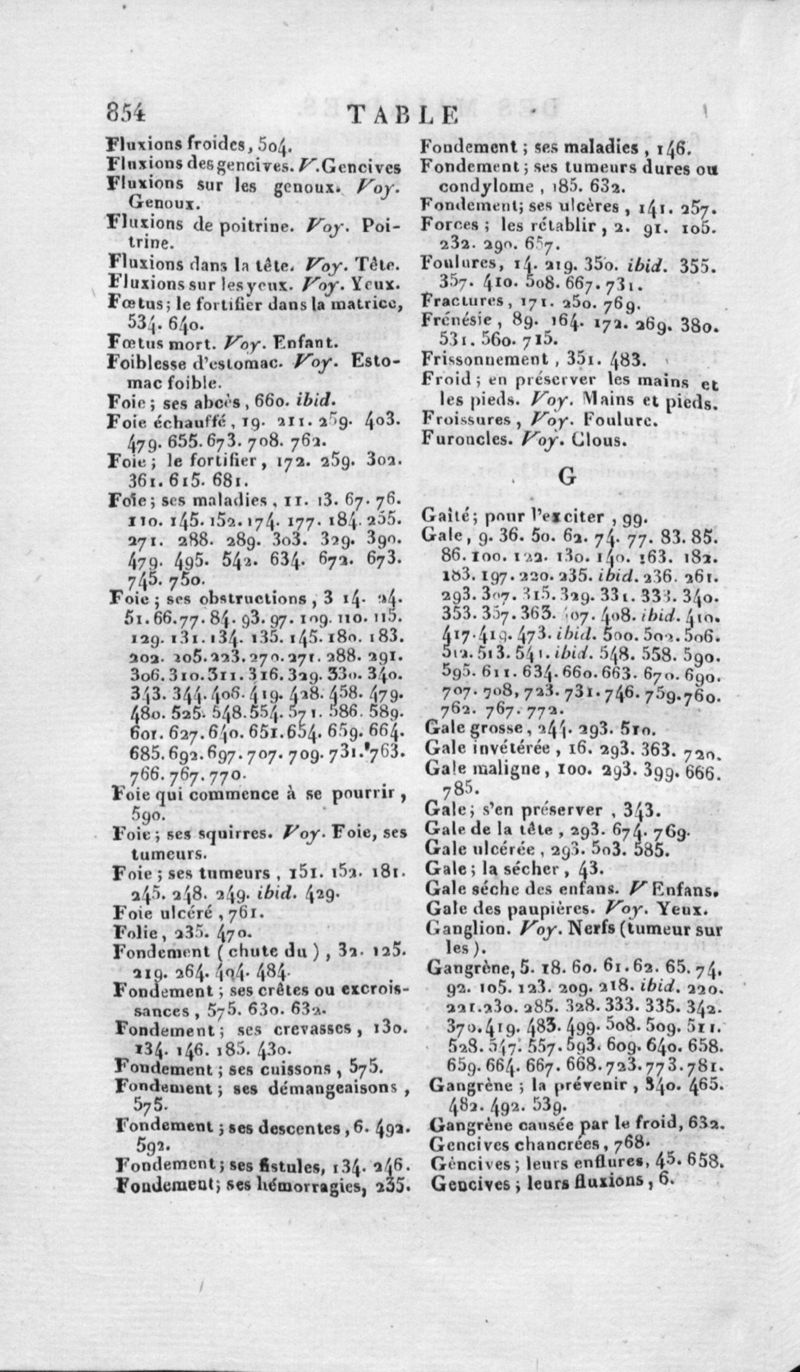 854
TABLE
Fluxions froides, 504.
Fluxions des gencives. V. Gencives
Fluxions sur les genoux. Voy.
Genoux.
Fluxions de poitrine. Voy. Poi-
trine.
Fluxions dans la tête. Voy. Tête.
Fluxions sur les yeux. Voy. Yeux.
Fœtus; le fortifier dans la matrice,
534. 640.
Fœtus mort. Voy. Enfant.
Foiblesse d'estomac. Voy. Esto-
mac foible.
Foie; ses abcès, 660. ibid.
Foie échauffé, 19. 211. 259. 403.
479. 655. 673. 708. 762.
Foie; le fortifier, 172. 259. 302.
361. 615. 681.
Foie; ses maladies, 11. 13. 67. 76.
110. 145. 152. 174. 177. 184. 255.
271. 288. 289. 303. 329. 390.
479. 495. 542. 634. 672. 673.
745. 750.
Foie; ses obstructions, 3 14. 24.
51. 66. 77. 84. 93. 97. 109. 110. 115.
129. 131. 134. 135. 145. 180. 183.
202. 205. 223. 270. 271. 288. 291.
306. 310. 311. 316. 329. 330. 340.
343. 344. 406. 419. 428. 458. 479.
480. 525. 548. 554. 571. 586. 589.
601. 627. 640. 651. 654. 659. 664.
685. 692. 697. 707. 709. 731. 763.
766. 767. 770.
Foie qui commence à se pourrir,
590.
Foie; ses squirres. Voy. Foie, ses
tumeurs.
Foie; ses tumeurs, 151. 152. 181.
245. 248. 249. ibid. 429.
Foie ulcéré, 761.
Folie, 235. 470.
Fondement (chute du), 32. 125.
219. 264. 404. 484.
Fondement; ses crêtes ou excrois-
sances, 575. 630. 632.
Fondement; ses crevasses, 130.
134. 146. 185. 430.
Fondement; ses cuissons, 575.
Fondement; ses démangeaisons,
575.
Fondement; ses descentes, 6. 492.
592.
Fondement; ses fistules, 134. 246.
Fondement; ses hémorragies, 235.
Fondement; ses maladies, 146.
Fondement; ses tumeurs dures ou
condylome, 185. 632.
Fondement; ses ulcères, 141. 257.
Forces; les rétablir, 2. 91. 105.
232. 290. 657.
Foulures, 14. 219. 350. ibid. 355.
357. 410. 508. 667. 731.
Fractures, 171. 250. 769.
Frénésie, 89. 164. 172. 269. 380.
531. 560. 715.
Frissonnement, 351. 483.
Froid; en préserver les mains et
les pieds. Voy. Mains et pieds.
Froissures, Voy. Foulure.
Furoncles. Voy. Clous.
G
Gaîté; pour l'exciter, 99.
Gale, 9. 36. 50. 62. 74. 77. 83. 85.
86. 100. 122. 130. 140. 163. 182.
183. 197. 220. 235. ibid. 236. 261.
293. 307. 315. 329. 331. 333. 340.
353. 357. 363. 407. 408. ibid. 410.
417. 419. 473. ibid. 500. 502. 506.
512. 513. 541. ibid. 548. 558. 590.
595. 611. 634. 660. 663. 670. 690.
707. 708, 723. 731. 746. 759. 760.
762. 767. 772.
Gale grosse, 244. 293. 510.
Gale invétérée, 16. 293. 363. 720.
Gale maligne, 100. 293. 399. 666.
785.
Gale; s'en préserver, 343.
Gale de la tête, 293. 674. 769.
Gale ulcérée, 293. 503. 585.
Gale; la sécher, 43.
Gale séche des enfans. V Enfans.
Gale des paupières. Voy. Yeux.
Ganglion. Voy. Nerfs (tumeur sur
les).
Gangrène, 5. 18. 60. 61. 62. 65. 74.
92. 105. 123. 209. 218. ibid. 220.
221. 230. 285. 328. 333. 335. 342.
370. 419. 483. 499. 508. 509. 511.
528. 547. 557. 593. 609. 640. 658.
659. 664. 667. 668. 723. 773. 781.
Gangrène; la prévenir, 340. 465.
482. 492. 539.
Gangrène causée par le froid, 632.
Gencives chancrées, 768.
Gencives; leurs enflures, 45. 658.
Gencives; leurs fluxions, 6.